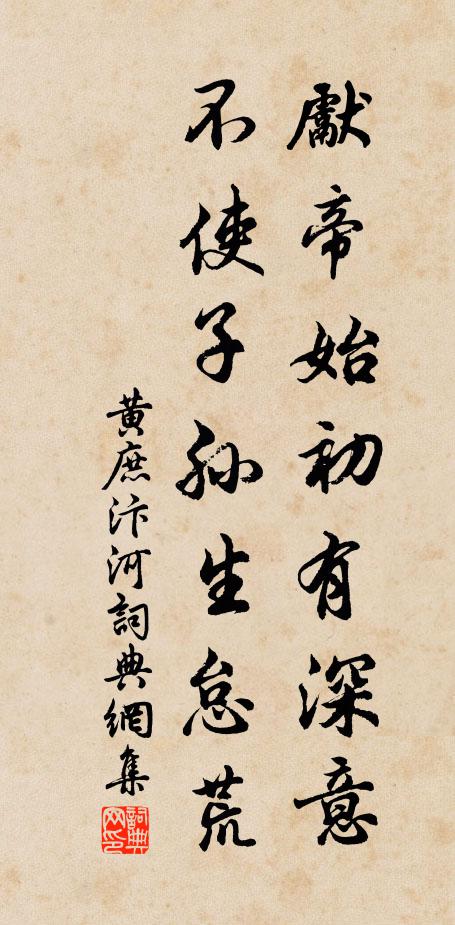 獻帝始初有深意
不使子孫生怠荒
黃庶汴河詞典網集
詞典網印